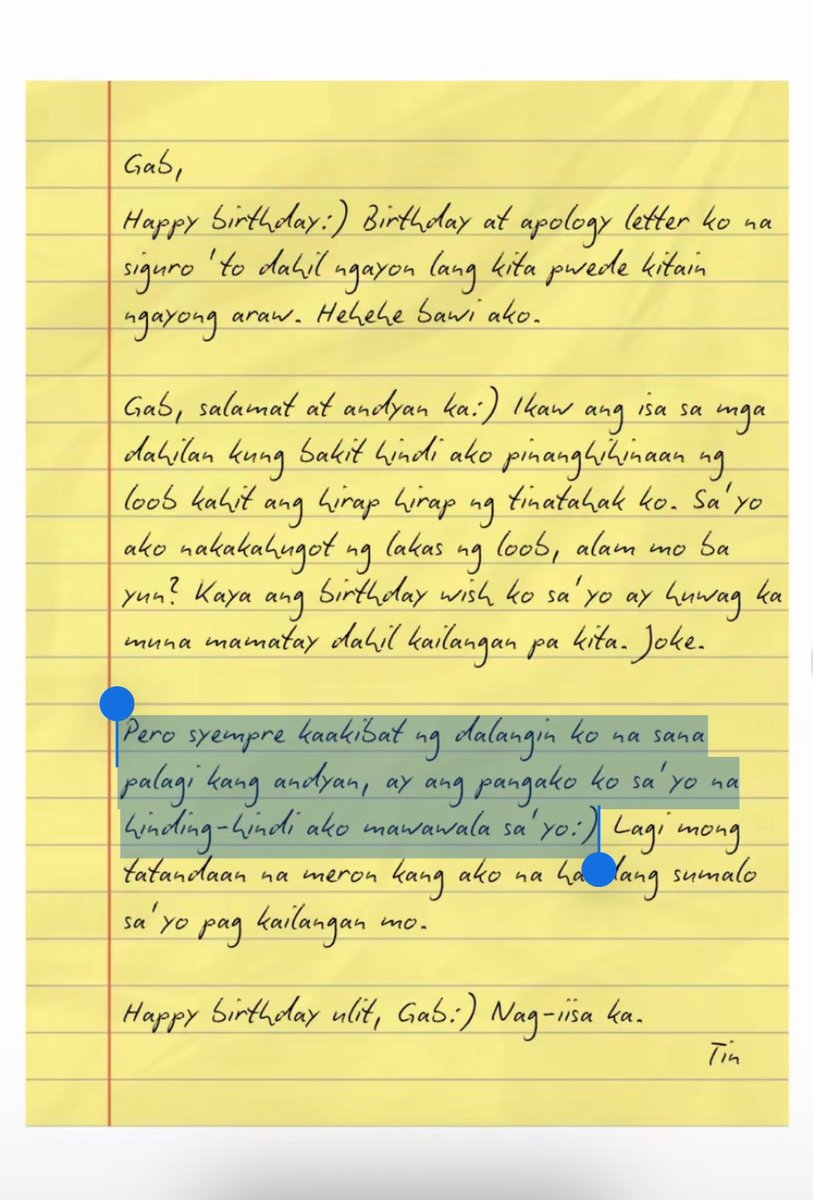 Gab,
Happy birthday:) Birthday at apology letter ko na
siguro 'to dahil ngayon lang kita pwede kitain
ngayong araw. Hehehe bawi ako.
Gab, salamat at andyan ka:) Ikaw ang isa sa mga
dahilan kung bakit hindi ako pinanghihinaan ng
loob kahit ang hirap hirap ng tinatahak ko. Sa'yo
ako nakakahugot ng lakas ng loob, alam mo ba
yun? Kaya ang birthday wish ko sa'yo ay huwag ka
muna mamatay dahil kailangan pa kita. Joke.
Pero syempre kaakibat ng dalangin ko na sana
palagi kang andyan, ay ang pangako ko sa'yo na
hinding-hindi ako mawawala sa'yo:) Lagi mong
tatandaan na meron kang ako na sumalo
sa'yo pag kailangan mo.
Happy birthday ulit, Gab:) Nag-iisa ka.
Tin